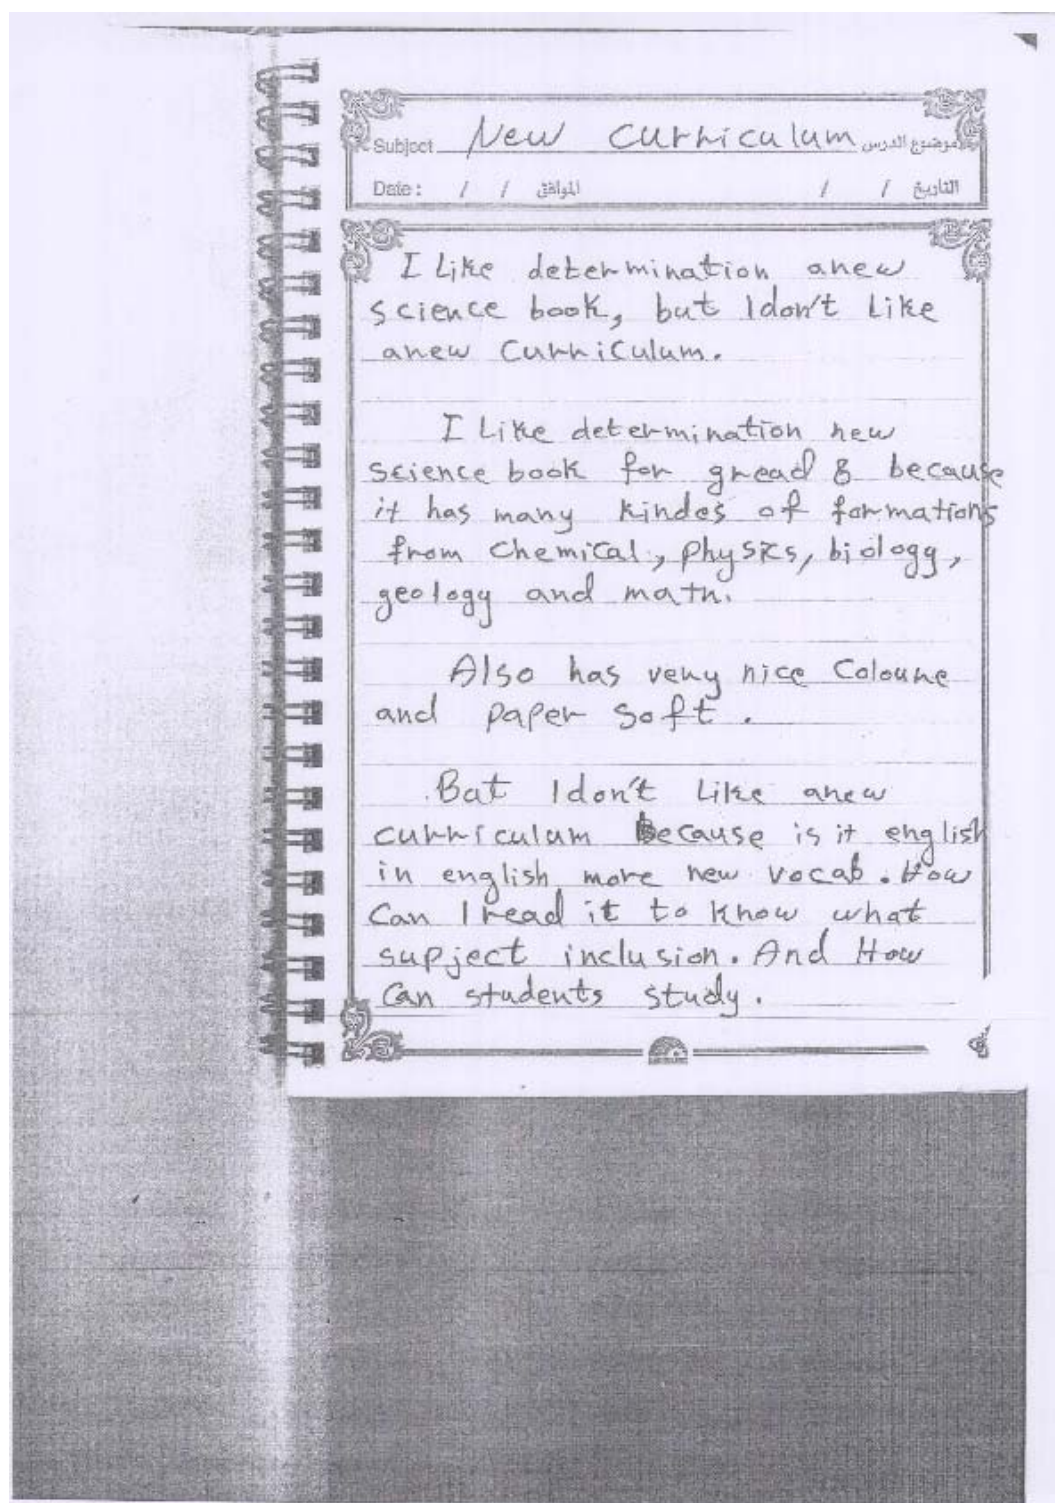 Subject New Curriculum موضوع الدرس
Date : / / الموافق / / التاريخ
I Like determination anew
science book, but I don't Like
anew Curriculum.
I Like determination new
science book for gread 8 because
it has many kindes of formations
from chemical, physics, biology,
geology and math.
Also has very nice Coloure
and paper soft .
But I don't Like anew
curriculum Because is it english
in english more new vocab. How
Can I read it to know what
supject inclusion. And How
Can students study.